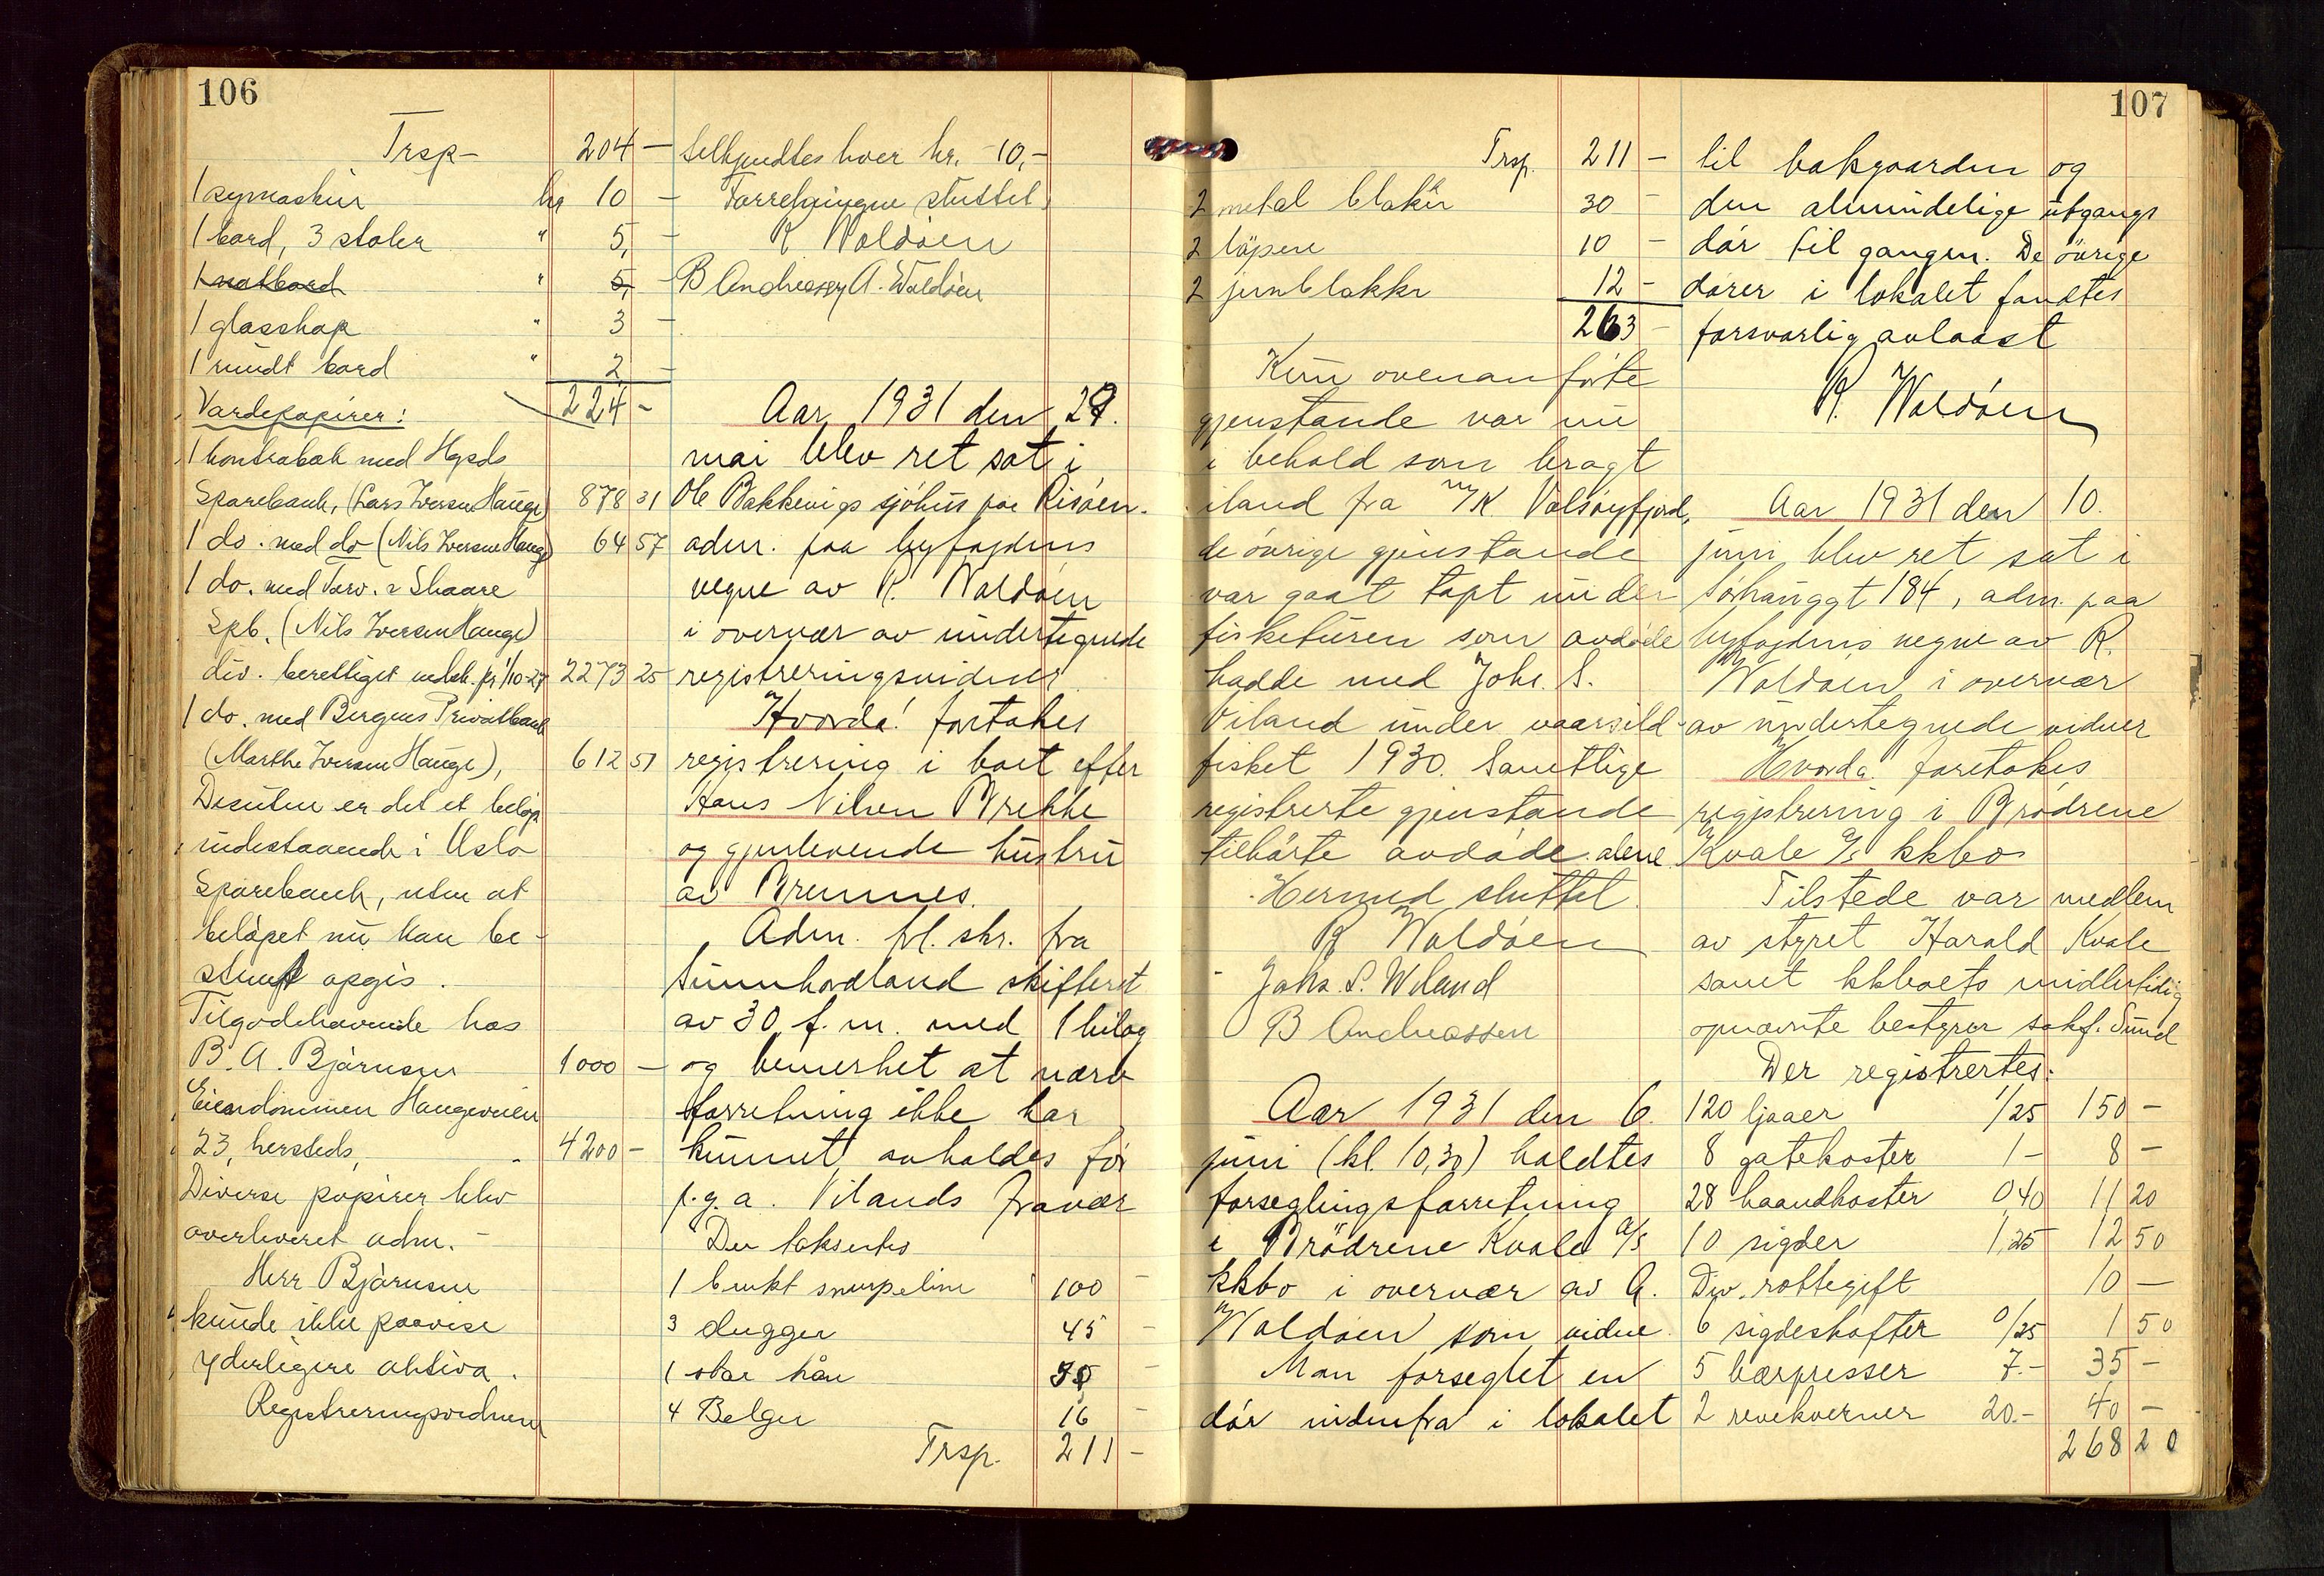 106
Trsp- 204 -
1 symaskin kr 10 -
1 bord, 3 stoler " 5,-
1 matbord " 5,-
1 glasskap " 3 -
1 rundt bord " 2 -
224 -
Værdipapirer:
1 kontrabok med Hgsds
Sparebank, (Lars Iversen Hauge) 878 31
1 do. med do (Nils Iversen Hauge) 64 57
1 do. med Torv. & Skaare
Spb. (Nils Iversen Hauge)
div. berettiget vedk. pr 1/10-27 2273 25
1 do. med Bergens Privatbank
(Marthe Iversen Hauge), 612 51
Desuten er det et beløp
indestaaende i Oslo
Sparebank, uten at
beløpet nu kan be-
stemt opgis.
Tilgodehavende hos
B. A. Bjørnsen 1000 -
Eiendommen Haugeveien
23, hersteds, 4200 -
Diverse papirer blev
overleveret adm. -
Herr Bjørnsen
kunde ikke paavise
yderligere aktiva.
Registreringsvidnene
tilkjendtes hver kr. 10,-
Forretningen sluttet.
R Waldøen
B Andreassen A. Waldøen
Aar 1931 den 29.
mai blev ret sat i
Ole Bakkevigs sjøhus paa Risøen.
adm. paa byfogdens
vegne av R. Waldøen
i overvær av undertegnede
registreringsvidner
Hvorda! foretokes
registrering i boet efter
Hans Nilsen Brekke
og gjenlevende hustru
av Bremnes.
Adm. frl. skr. fra
Sunnhordland skifteret
av 30 f. m. med 1 bilag
og bemerket at nærv
forretning ikke har
kunnet avholdes før
p.g.a. Vilands fravær
Der taksertes
1 brukt snurpeline 100 -
3 dugger 45 -
1 stor hån 50 -
4 Belger 16 -
Trsp. 211 -
107
Trsp. 211 -
2 metal blakker 30 -
2 løpere 10 -
2 jernblakker 12 -
263 -
Kun ovenanførte
gjenstande var nu
i behold som bragt
iland fra M/K Valsøyfjord,
de øvrige gjenstande
var gaat tapt under
fisketuren som avdøde
hadde med Johs. S.
Viland under vaarsild-
fisket 1930. Samtlige
registrerte gjenstande
tilhørte avdøde alene.
Hermed sluttet.
R Waldøen
Johs. S. Wiland
B Andreassen
Aar 1931 den 6.
juni (kl. 10,30) holdtes
forseglingsforretning
i Brødrene Kvale A/S
kkbo i overvær av A.
Waldøen som vidne.
Man forseglet en
dør indenfra i lokalet
til bakgaarden og
den almindelige utgangs
dør til gangen. De øvrige
dører i lokalet fandtes
forsvarlig avlaast
R. Waldøen
Aar 1931 den 10.
juni blev ret sat i
Sørhauggt 184, adm. paa
byfogdens vegne av R.
Waldøen i overvær
av undertegnede vidner
Hvorda! foretokes
registrering i Brødrene
Kvale A/S kkbo
Tilstede var medlem
av styret Harald Kvale
samt kkboets midlertidig
opnævnte bestyrer sakf. Sund
Der registrertes:
120 ljaaer 1/25 150 -
8 gatekoster 1 - 8 -
28 haandkoster 0,40 11 20
10 sigder 1,25 12 50
Div. rottegift 10 -
6 sigdeskafter 0/25 1 50
5 bærpresser 7.- 35 -
2 revekverner 20.- 40 -
268 20